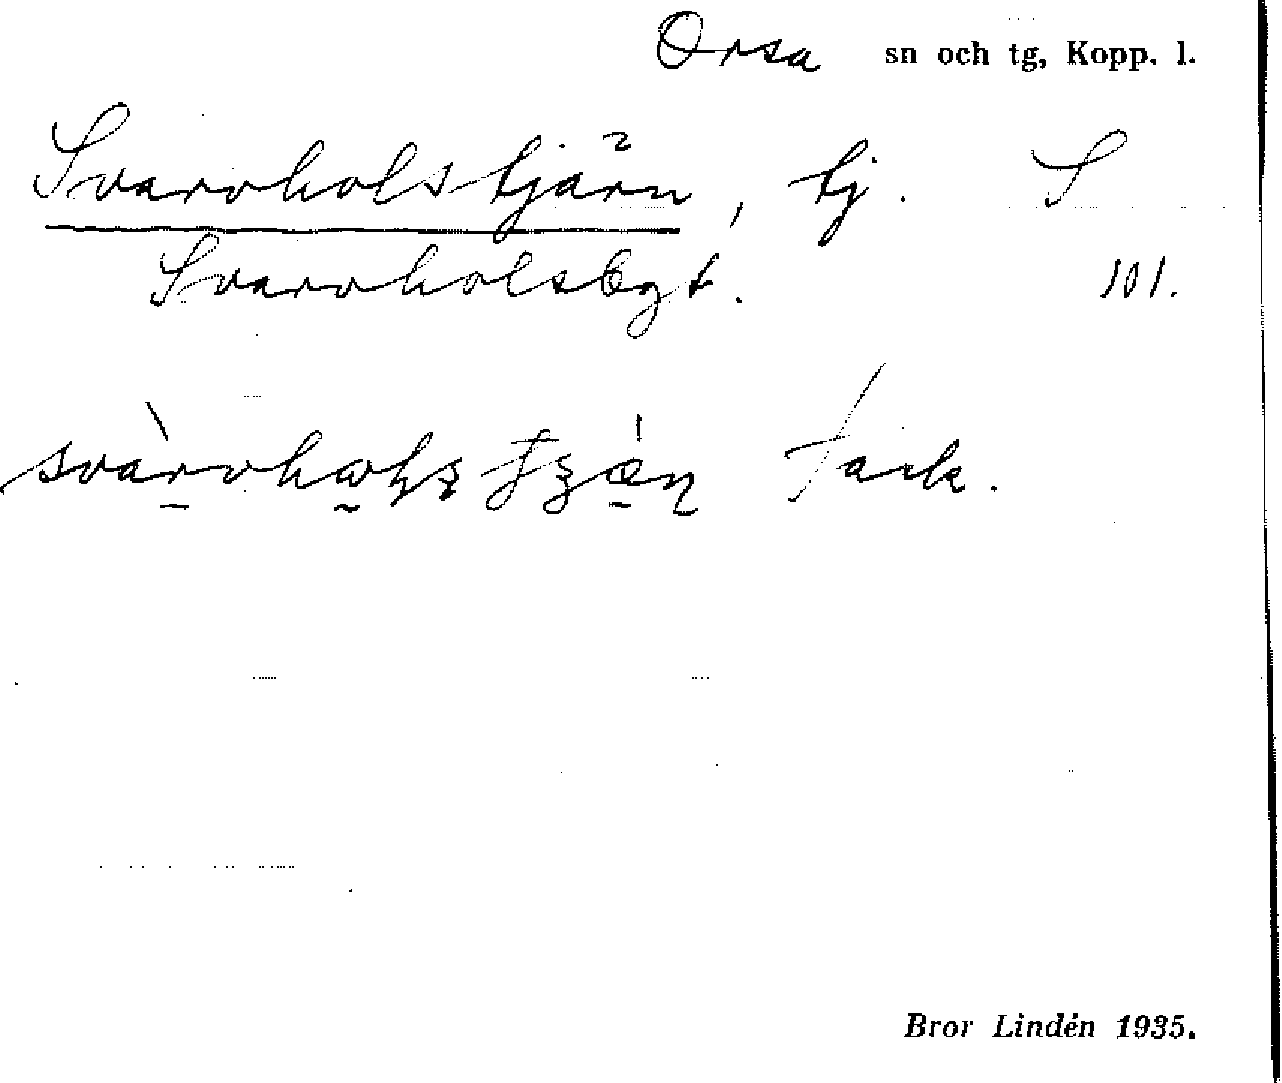 Orsa sn och tg, Kopp. l.
Svarvholstjärn, tj. S
Svarvholsbgt. 101.
Tack.
Bror Lindén 1935.